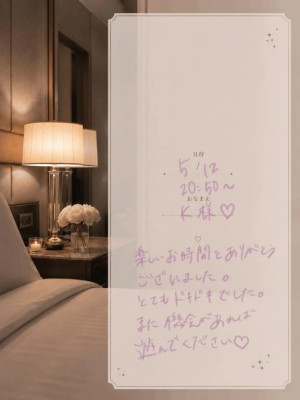 日付
5/12
20:50〜
おなまえ
K 様♡
♡
楽しいお時間をありがとう
ございました。
とてもドキドキでした。
また機会があれば
遊んでください♡